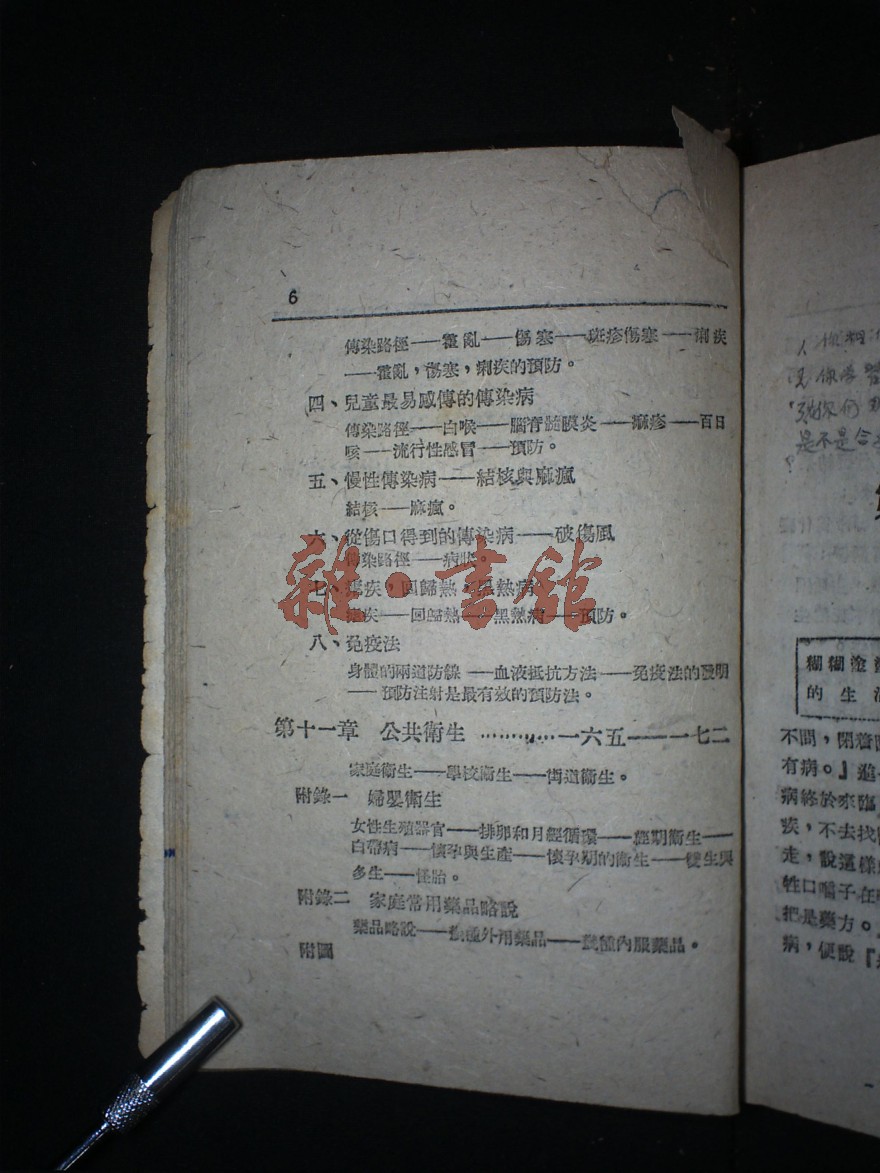 6
傳染路徑——霍亂——傷寒——斑疹傷寒——痢疾
——霍亂，傷寒，痢疾的預防。
四、兒童最易感傳的傳染病
傳染路徑——白喉——腦脊髓膜炎——痲疹——百日
咳——流行性感冒——預防。
五、慢性傳染病——結核與痲瘋
結核——痲瘋。
六、從傷口得到的傳染病——破傷風
傳染路徑——病
七、瘧疾，回歸熱，黑熱病
瘧疾——回歸熱——黑熱病——預防。
八、免疫法
身體的兩道防線——血液抵抗方法——免疫法的發明
——預防注射是最有效的預防法。
第十一章 公共衛生 …………一六五——一七二
家庭衛生——學校衛生——街道衛生。
附錄一 婦嬰衛生
女性生殖器官——排卵和月經循環——經期衛生——
白帶病——懷孕與生產——懷孕期的衛生——雙生與
多生——怪胎。
附錄二 家庭常用藥品略說
藥品略說——幾種外用藥品——幾種內服藥品。
附圖
雜·書館
是不是合
糊糊塗
的生活
不問，閉着
有病。』進
病終於來臨
疾，不去找
走，說這樣
牲口嚼子在
把是藥方。
病，便說『